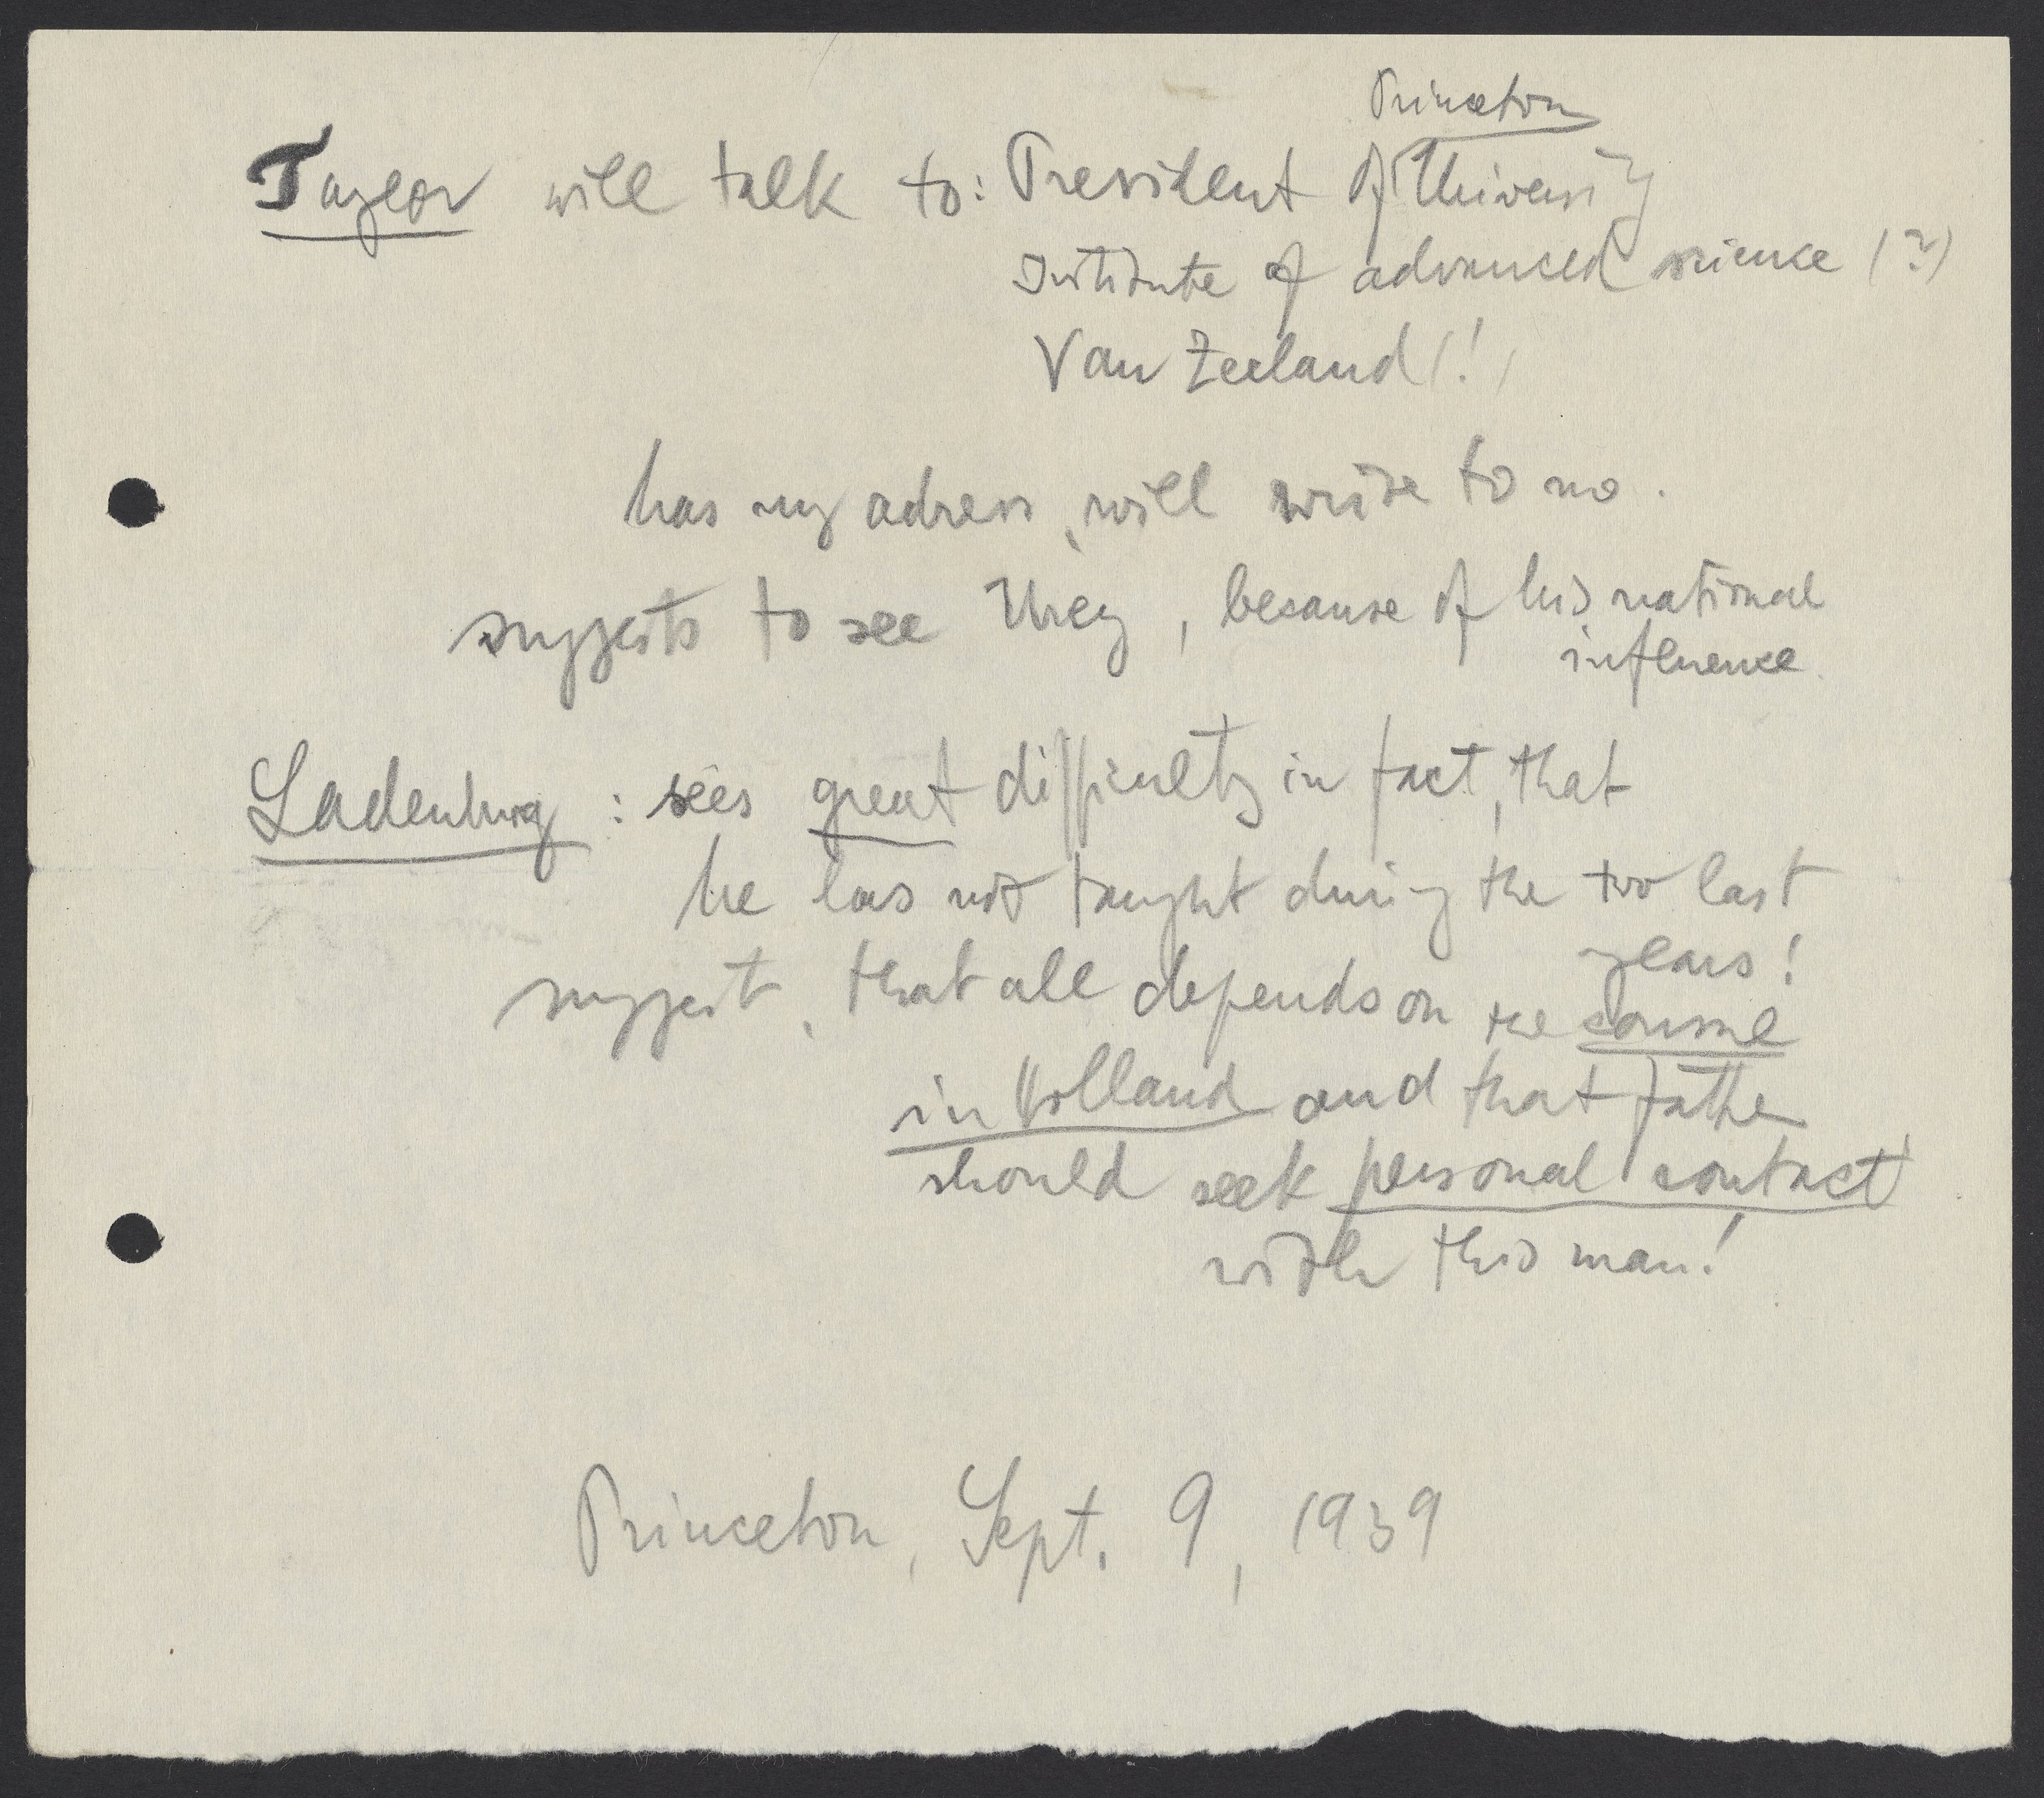 Princeton
Taylor will talk to: President of University
Institute of advanced science (?)
Van Zeeland (!)
has my adress, will write to us.
suggests to see Urey, because of his national
influence.
Ladenburg: sees great difficulty in fact, that
he has not taught during the two last
years!
suggest, that all depends on the consul
in Holland and that father
should seek personal contact
with this man!
Princeton, Sept. 9, 1939